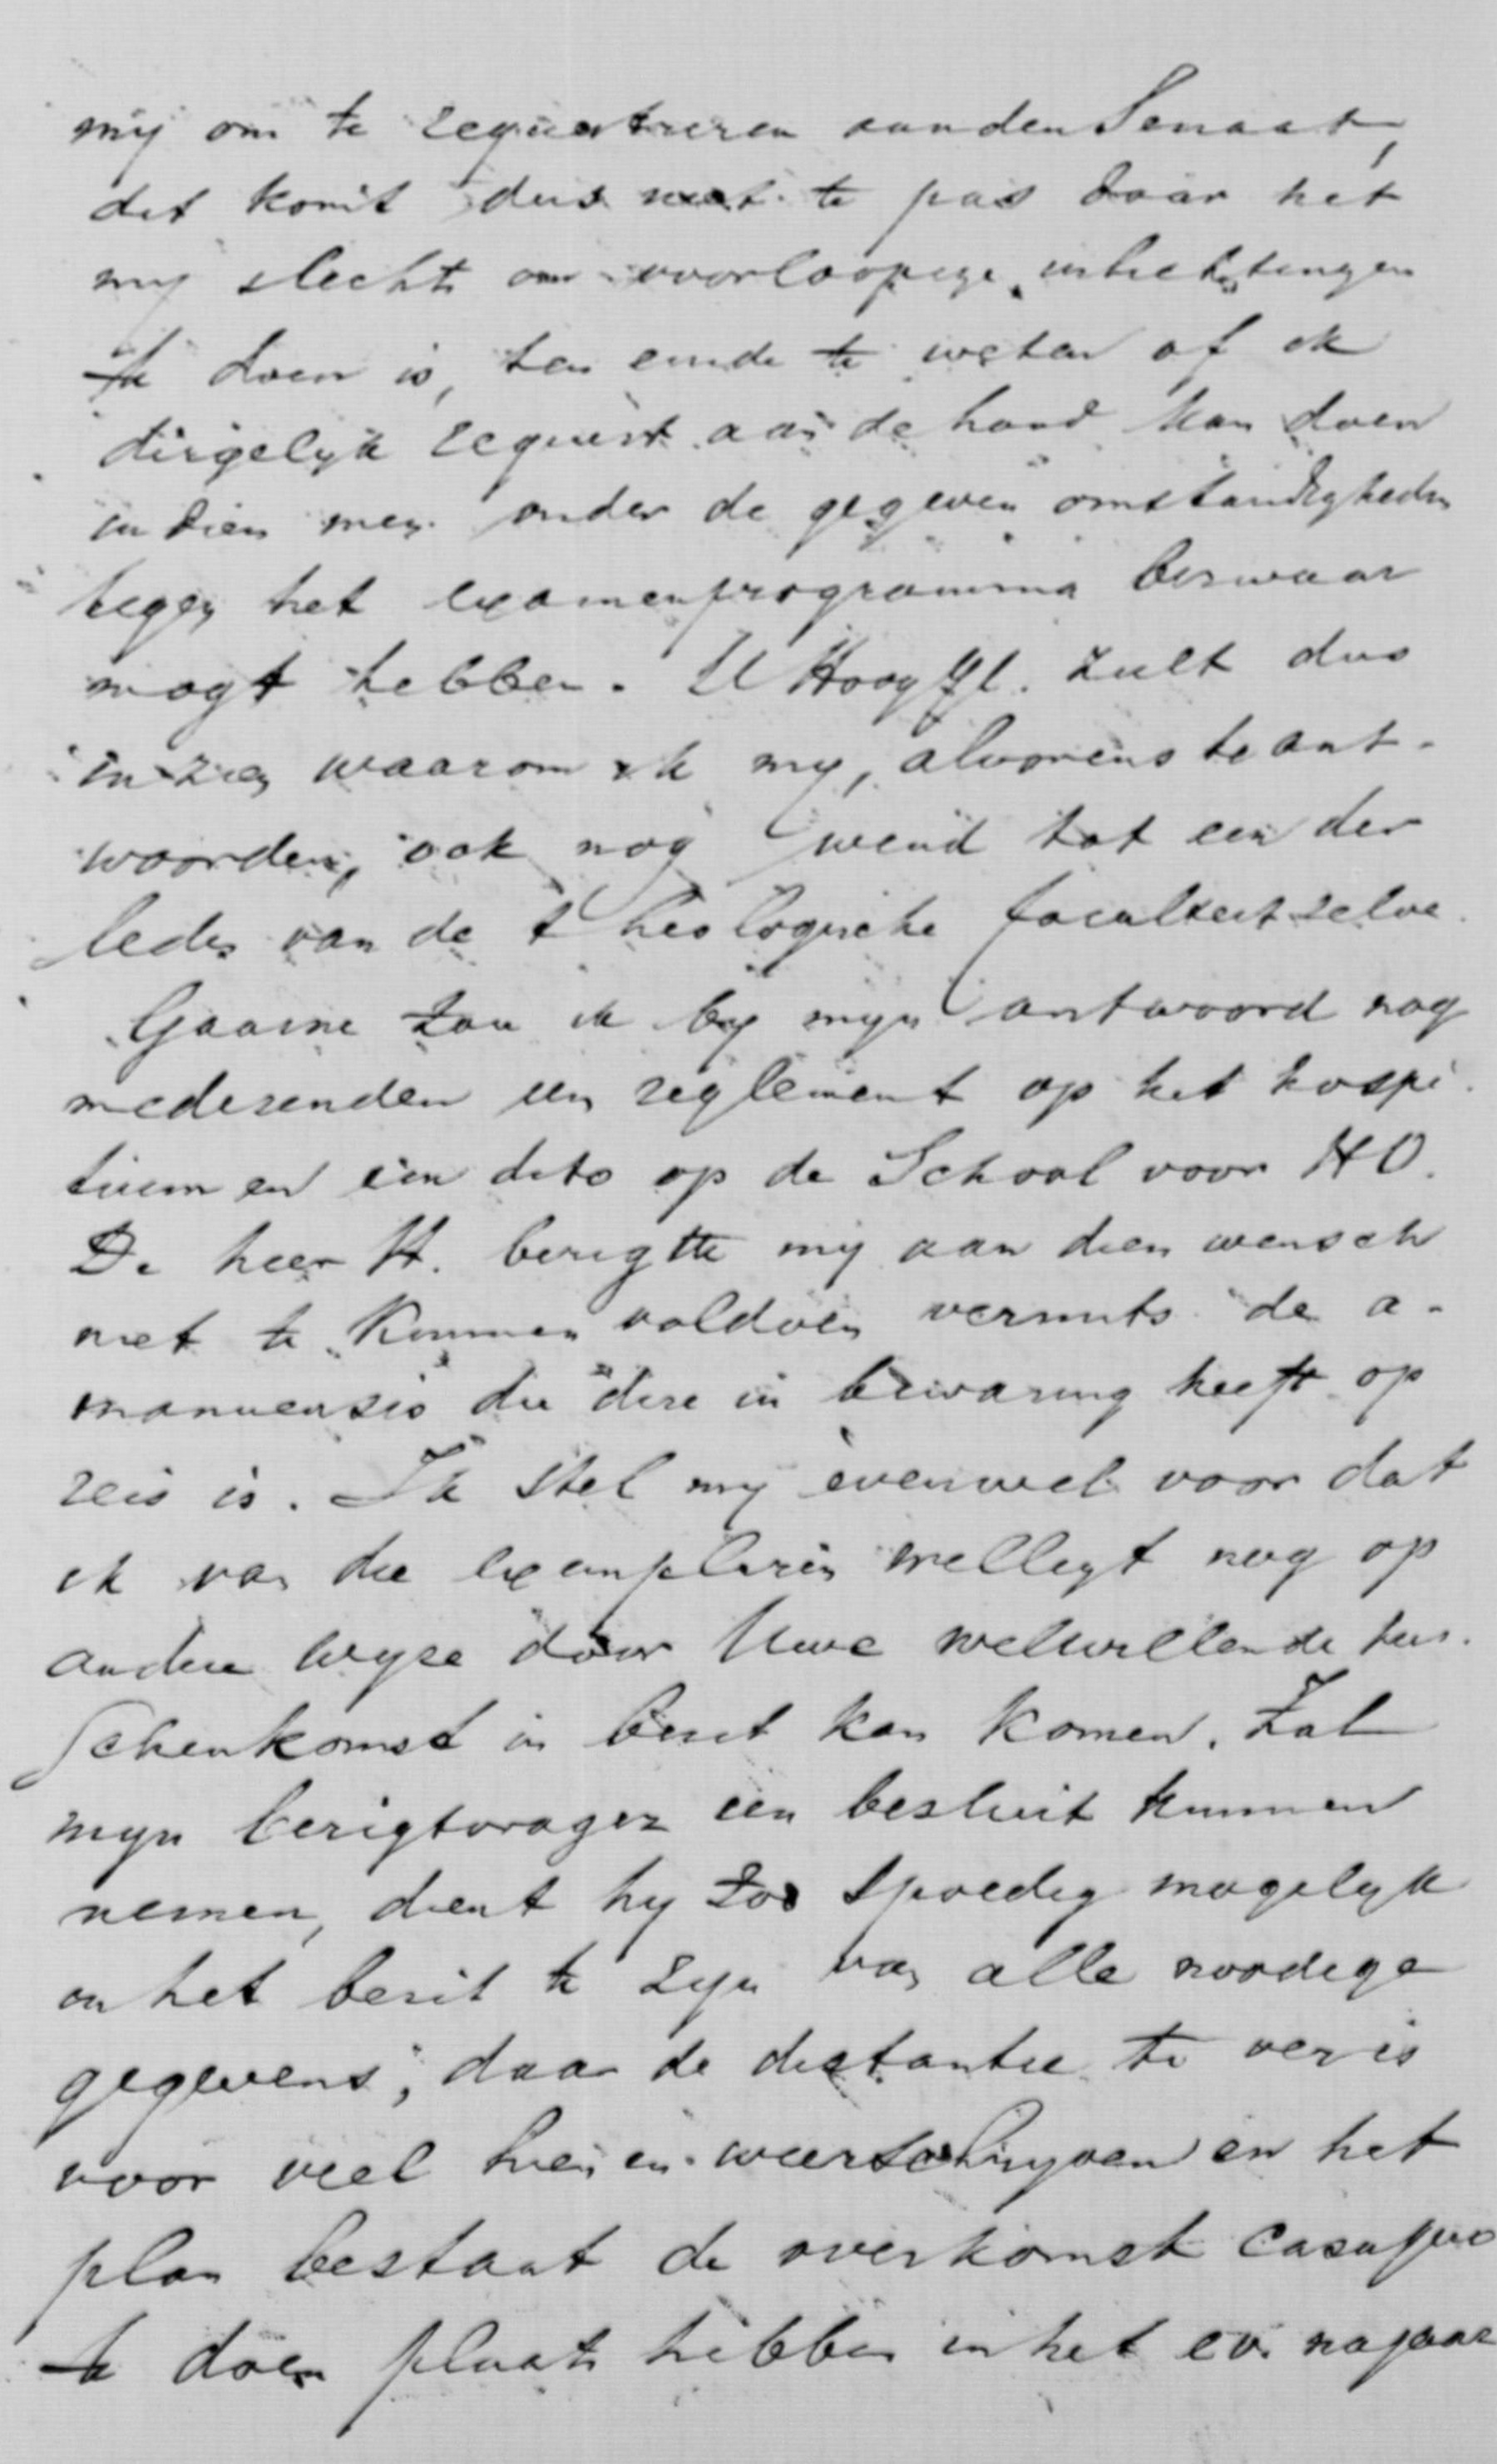 mij om te requestreren aan den Senaat,
dit komt dus niet te pas daar het
mij slechts om voorloopige inlichtingen
te doen is, ten einde te weten of ik
dergelijk request aan de hand kan doen
indien men onder de gegeven omstandigheden
tegen het examenprogramma bezwaar
mogt hebben. U HoogGel. zult dus
inzien waarom ik mij, alvorens te ant-
woorden, ook nog wend tot een der
leden van de theologische faculteit zelve.
Gaarne zou ik bij mijn antwoord nog
medezenden een reglement op het hospi-
tium en een dito op de School voor HO.
De heer H. berigtte mij aan dien wensch
niet te kunnen voldoen vermits de a-
manuensis die deze in bewaring heeft op
reis is. Ik stel mij evenwel voor dat
ik van die exemplaren wellegt nog op
andere wijze door Uwe welwillende tus-
schenkomst in bezit kan komen. Zal
mijn berigtvrager een besluit kunnen
nemen, dient hij zoo spoedig mogelijk
in het bezit te zijn van alle noodige
gegevens, daar de distantie te ver is
voor veel heen en weerschrijven en het
plan bestaat de overkomst casu quo
te doen plaats hebben in het ev. najaar